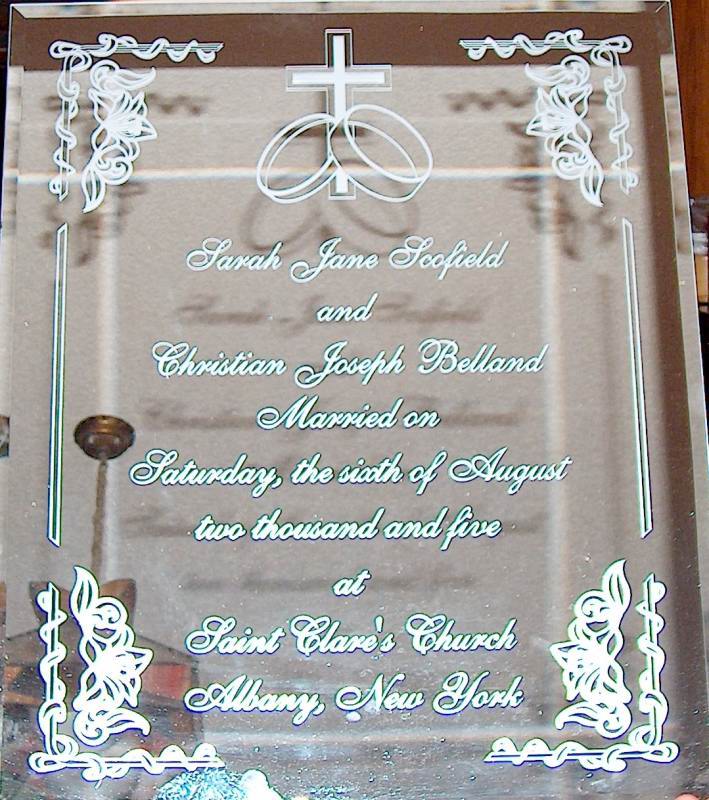 Sarah Jane Scofield
and
Christian Joseph Belland
Married on
Saturday, the sixth of August
two thousand and five
at
Saint Clare's Church
Albany, New York